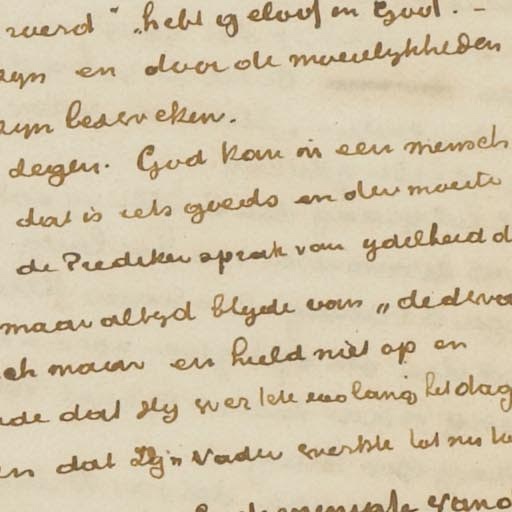 werd" „hebt geloof in God". –
zyn en door de moeielykheden
zyn bezweken.
degen. God kan in een mensch
dat is iets goeds en der moeite
de Prediker sprak van ydelheid d
maar altyd blyde van „dedeva
ch maar en hield niet op en
de dat Hy werkte zoolang het dag
en dat Zyn Vader werkte tot nu to